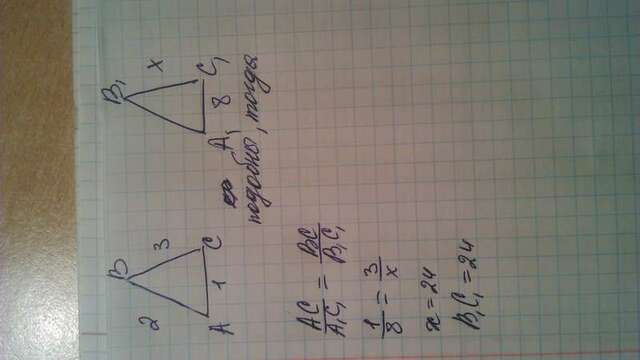 B
2 3
A 1 C
B₁
x
A₁ 8 C₁
подобны, тогда
AC/A₁C₁ = BC/B₁C₁
1/8 = 3/x
x = 24
B₁C₁ = 24